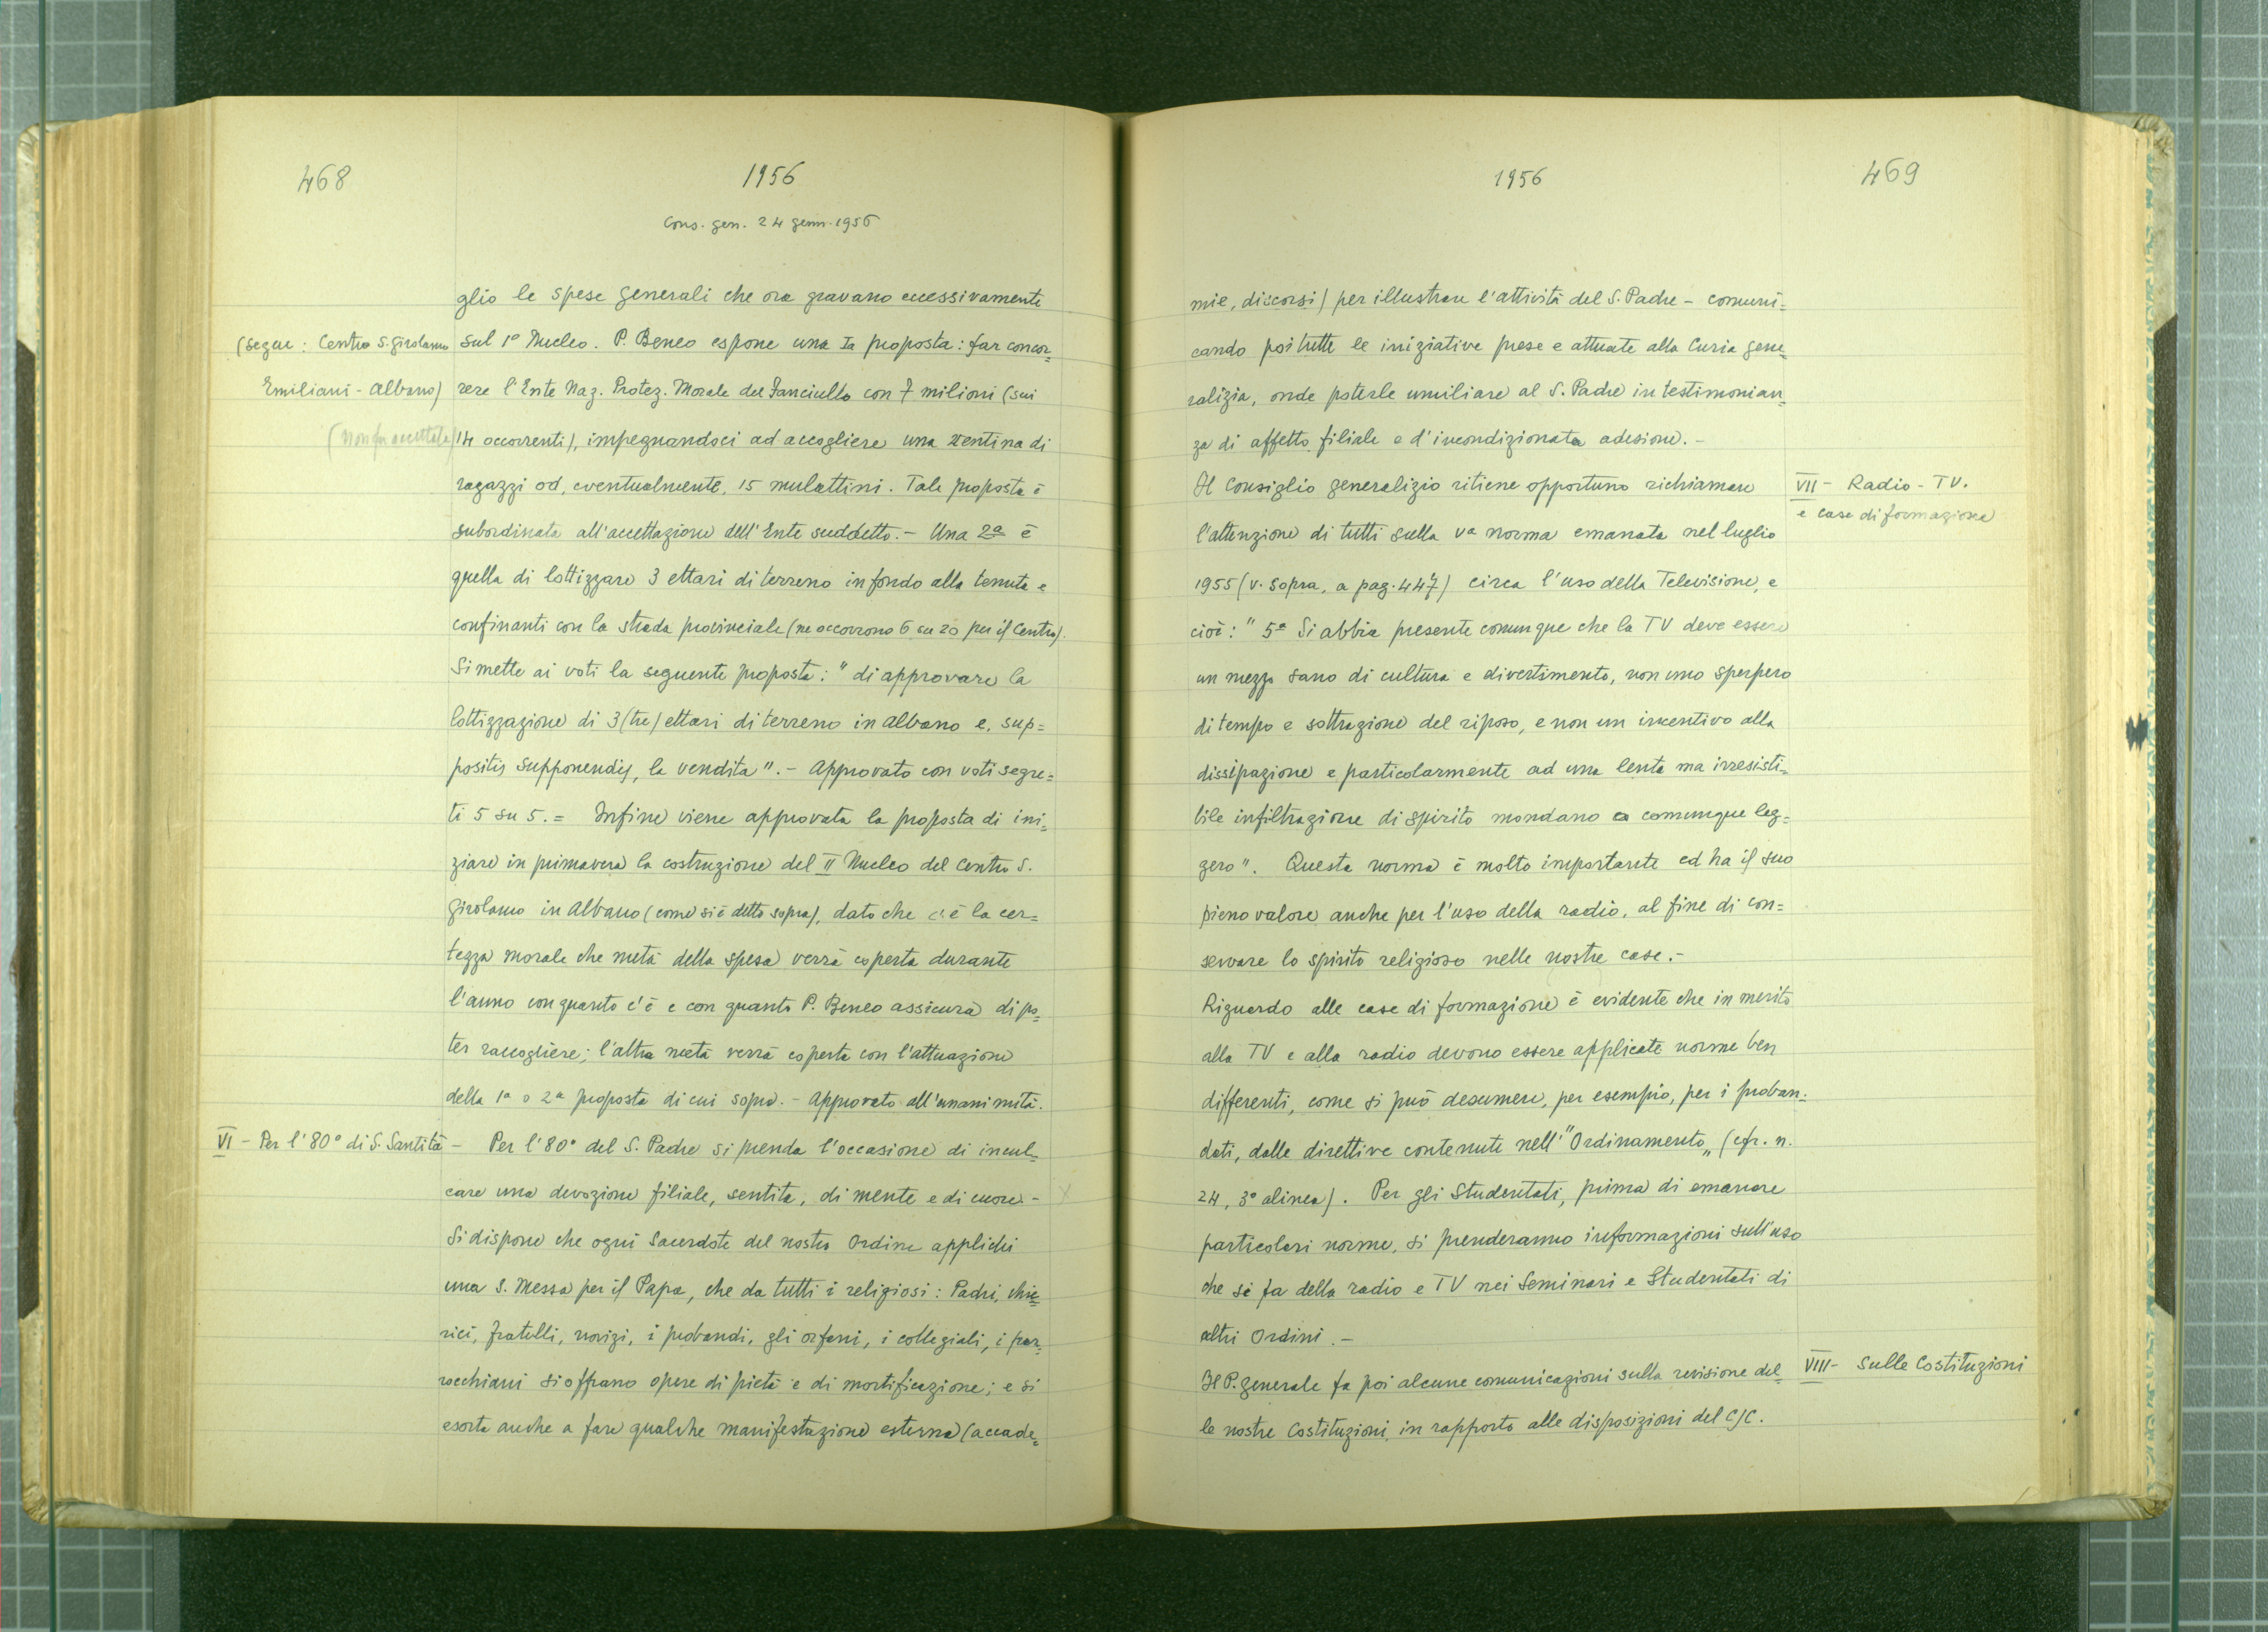 468
1956
Cons. gen. 24 genn. 1956
glio le spese generali che ora gravano eccessivamente
(segue: Centro S. Girolamo
sul 1° Nucleo. P. Beneo espone una Ia proposta: far concor=
Emiliani - Albano)
rere l'Ente Naz. Protez. Morale del Fanciullo con 7 milioni (sui
(non fu accettata)
14 occorrenti), impegnandoci ad accogliere una ventina di
ragazzi od, eventualmente, 15 mulattini. Tale proposta è
subordinata all'accettazione dell'Ente suddetto. - Una 2a è
quella di lottizzare 3 ettari di terreno in fondo alla tenuta e
confinanti con la strada provinciale (ne occorrono 6 su 20 per il Centro).
Si mette ai voti la seguente proposta: "di approvare la
lottizzazione di 3 (tre) ettari di terreno in Albano e, sup=
positis supponendis, la vendita". - Approvato con voti segre=
ti 5 su 5. = Infine viene approvata la proposta di ini=
ziare in primavera la costruzione del II Nucleo del Centro S.
Girolamo in Albano (come si è detto sopra), dato che c'è la cer=
tezza morale che metà della spesa verrà coperta durante
l'anno con quanto c'è e con quanto P. Beneo assicura di po=
ter raccogliere; l'altra metà verrà coperta con l'attuazione
della 1a o 2a proposta di cui sopra. - Approvato all'unanimità.
VI - Per l'80° di S. Santità -
Per l'80° del S. Padre si prenda l'occasione di incul=
care una devozione filiale, sentita, di mente e di cuore. -
Si dispone che ogni Sacerdote del nostro Ordine applichi
una S. Messa per il Papa, che da tutti i religiosi: Padri, chie=
rici, fratelli, novizi, i probandi, gli orfani, i collegiali, i par=
rocchiani si offrano opere di pietà e di mortificazione; e si
esorta anche a fare qualche manifestazione esterna (accade=
1956
469
mie, discorsi) per illustrare l'attività del S. Padre - comuni=
cando poi tutte le iniziative prese e attuate alla Curia gene=
ralizia, onde poterle umiliare al S. Padre in testimonian=
za di affetto filiale e d'incondizionata adesione. -
Il Consiglio generalizio ritiene opportuno richiamare
VII - Radio - TV.
e case di formazione
l'attenzione di tutti sulla Va norma emanata nel luglio
1955 (v. sopra, a pag. 447) circa l'uso della Televisione, e
cioè: "5a Si abbia presente comunque che la TV deve essere
un mezzo sano di cultura e divertimento, non uno sperpero
di tempo e sottrazione del riposo, e non un incentivo alla
dissipazione e particolarmente ad una lenta ma irresisti=
bile infiltrazione di spirito mondano o comunque leg=
gero". Questa norma è molto importante ed ha il suo
pieno valore anche per l'uso della radio, al fine di con=
servare lo spirito religioso nelle nostre case. -
Riguardo alle case di formazione è evidente che in merito
alla TV e alla radio devono essere applicate norme ben
differenti, come si può desumere, per esempio, per i proban=
dati, dalle direttive contenute nell'"Ordinamento„ (cfr. n.
24, 3° alinea). Per gli Studentati, prima di emanare
particolari norme, si prenderanno informazioni sull'uso
che si fa della radio e TV nei Seminari e Studentati di
altri Ordini. -
Il P. generale fa poi alcune comunicazioni sulla revisione del=
VIII - Sulle Costituzioni
le nostre Costituzioni in rapporto alle disposizioni del CJC.